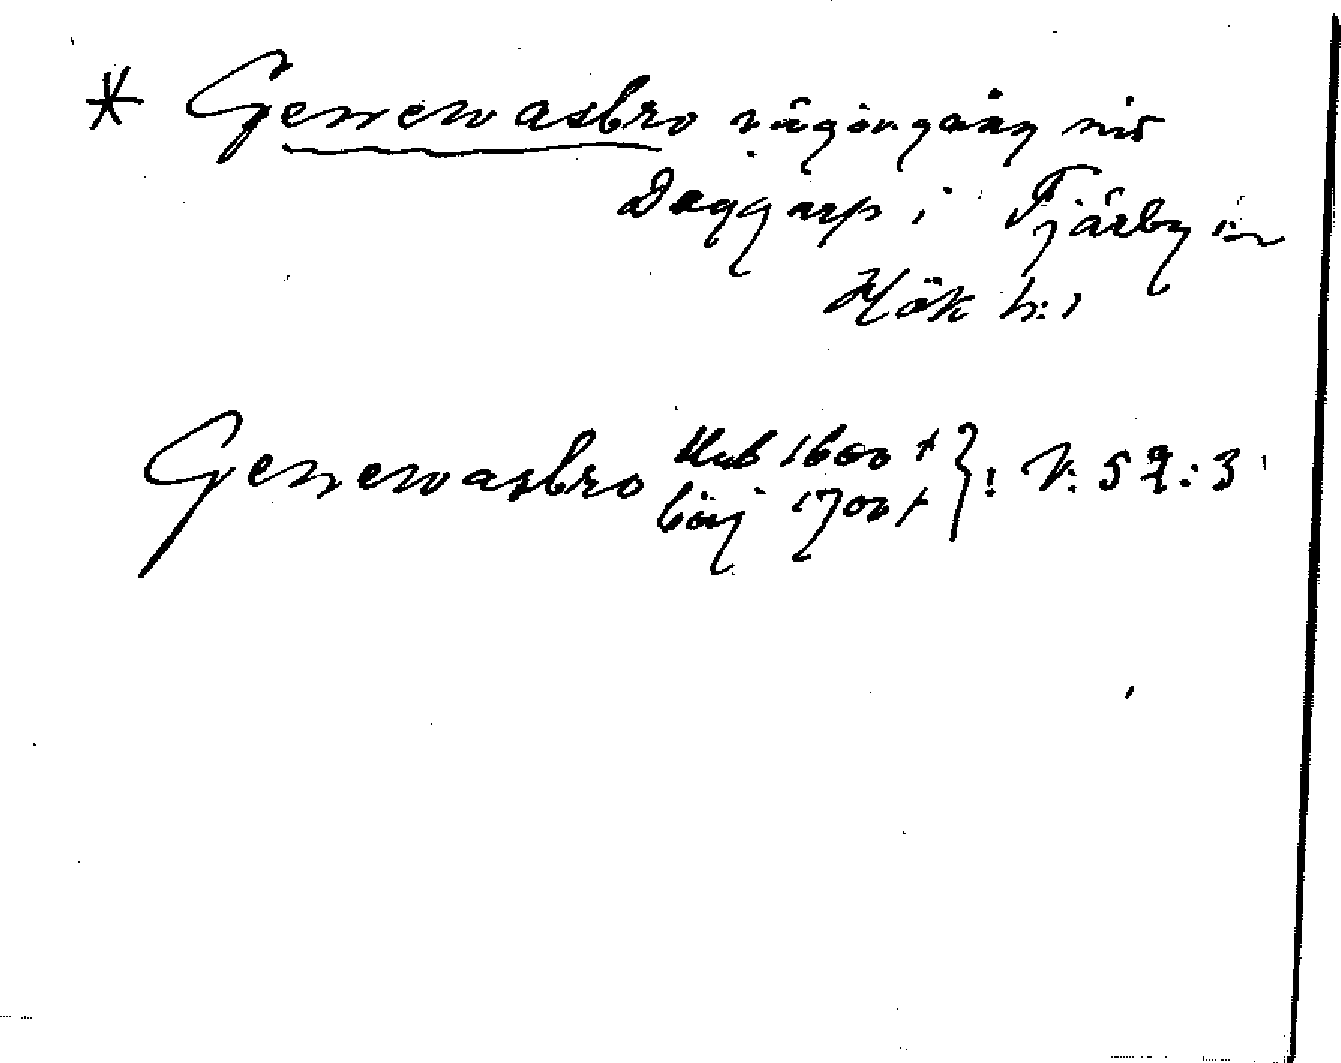 * Genewasbro vägövergång vid
Daggarp i Tjärby sn
Hök h:d
Genewasbro slut 1600 t
börj 1700 t }! N: 52:3